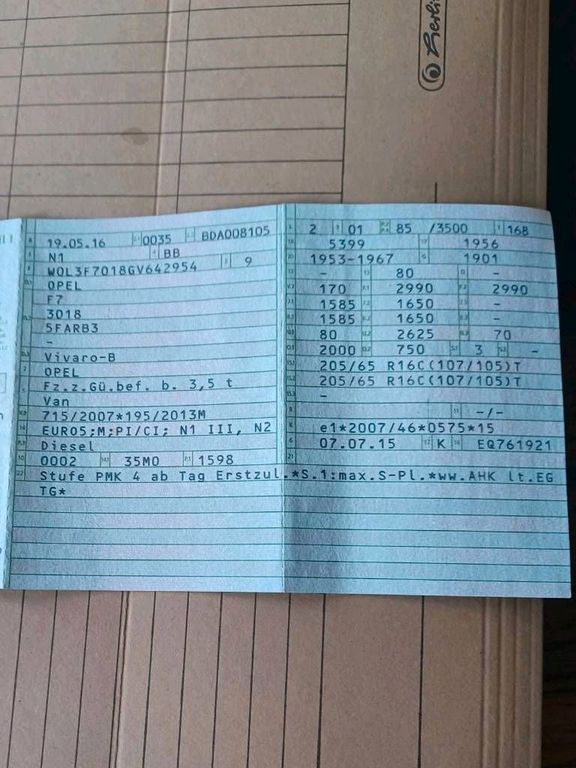 Herlitz
19.05.16 0035 BDA008105
N1 BB
W0L3F7018GV642954 9
OPEL
F7
3018
5FARB3
-
Vivaro-B
OPEL
Fz.z.Gü.bef. b. 3,5 t
Van
715/2007*195/2013M
EURO5;M;PI/CI; N1 III, N2
Diesel
0002 35M0 1598
2 01 85 /3500 168
5399 1956
1953-1967 1901
- 80 -
170 2990 2990
1585 1650 -
1585 1650 -
80 2625 70
2000 750 3 -
205/65 R16C(107/105)T
205/65 R16C(107/105)T
-
-/-
e1*2007/46*0575*15
07.07.15 K EQ761921
Stufe PMK 4 ab Tag Erstzul.*S.1:max.S-Pl.*ww.AHK lt.EG
TG*